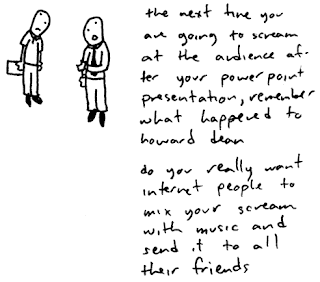 the next time you
are going to scream
at the audience af-
ter your powerpoint
presentation, remember
what happened to
howard dean
do you really want
internet people to
mix your scream
with music and
send it to all
their friends